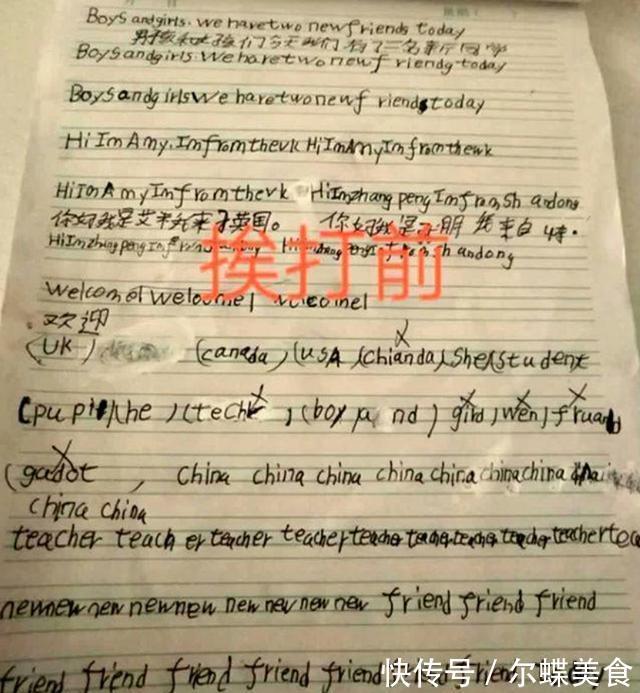 Boys andgirls. we have two new friends today
男孩和女孩们今天我们有了二名新同学
Boysandgirls. Wehavetwonewf riendstoday
BoysandgirlsWe havetwonewf riendstoday
HiImAmy.Imfromthevk HiImAmyImfromthewk
HiImAmyImfromthevk Hi Imzhang pengImfromsh andong
你好我是艾米我来于英国。 你好我是 朋 来自
HiImzhangpengImf sh andong
挨打前
Welcome!welcome! welcome!
欢迎
(UK) (canada)(USA (chianda),she(student
(pupil)(he )(teche ),(boy nd) gird)wen)fruand
(gadot , China china china china china chinachina
china china
teacher teach er teacher teacher teacher teacher teacher teacher teachertea
newnew new newnew new new new new friend friend friend
friend friend friend friend friend
快传号/尔蝶美食